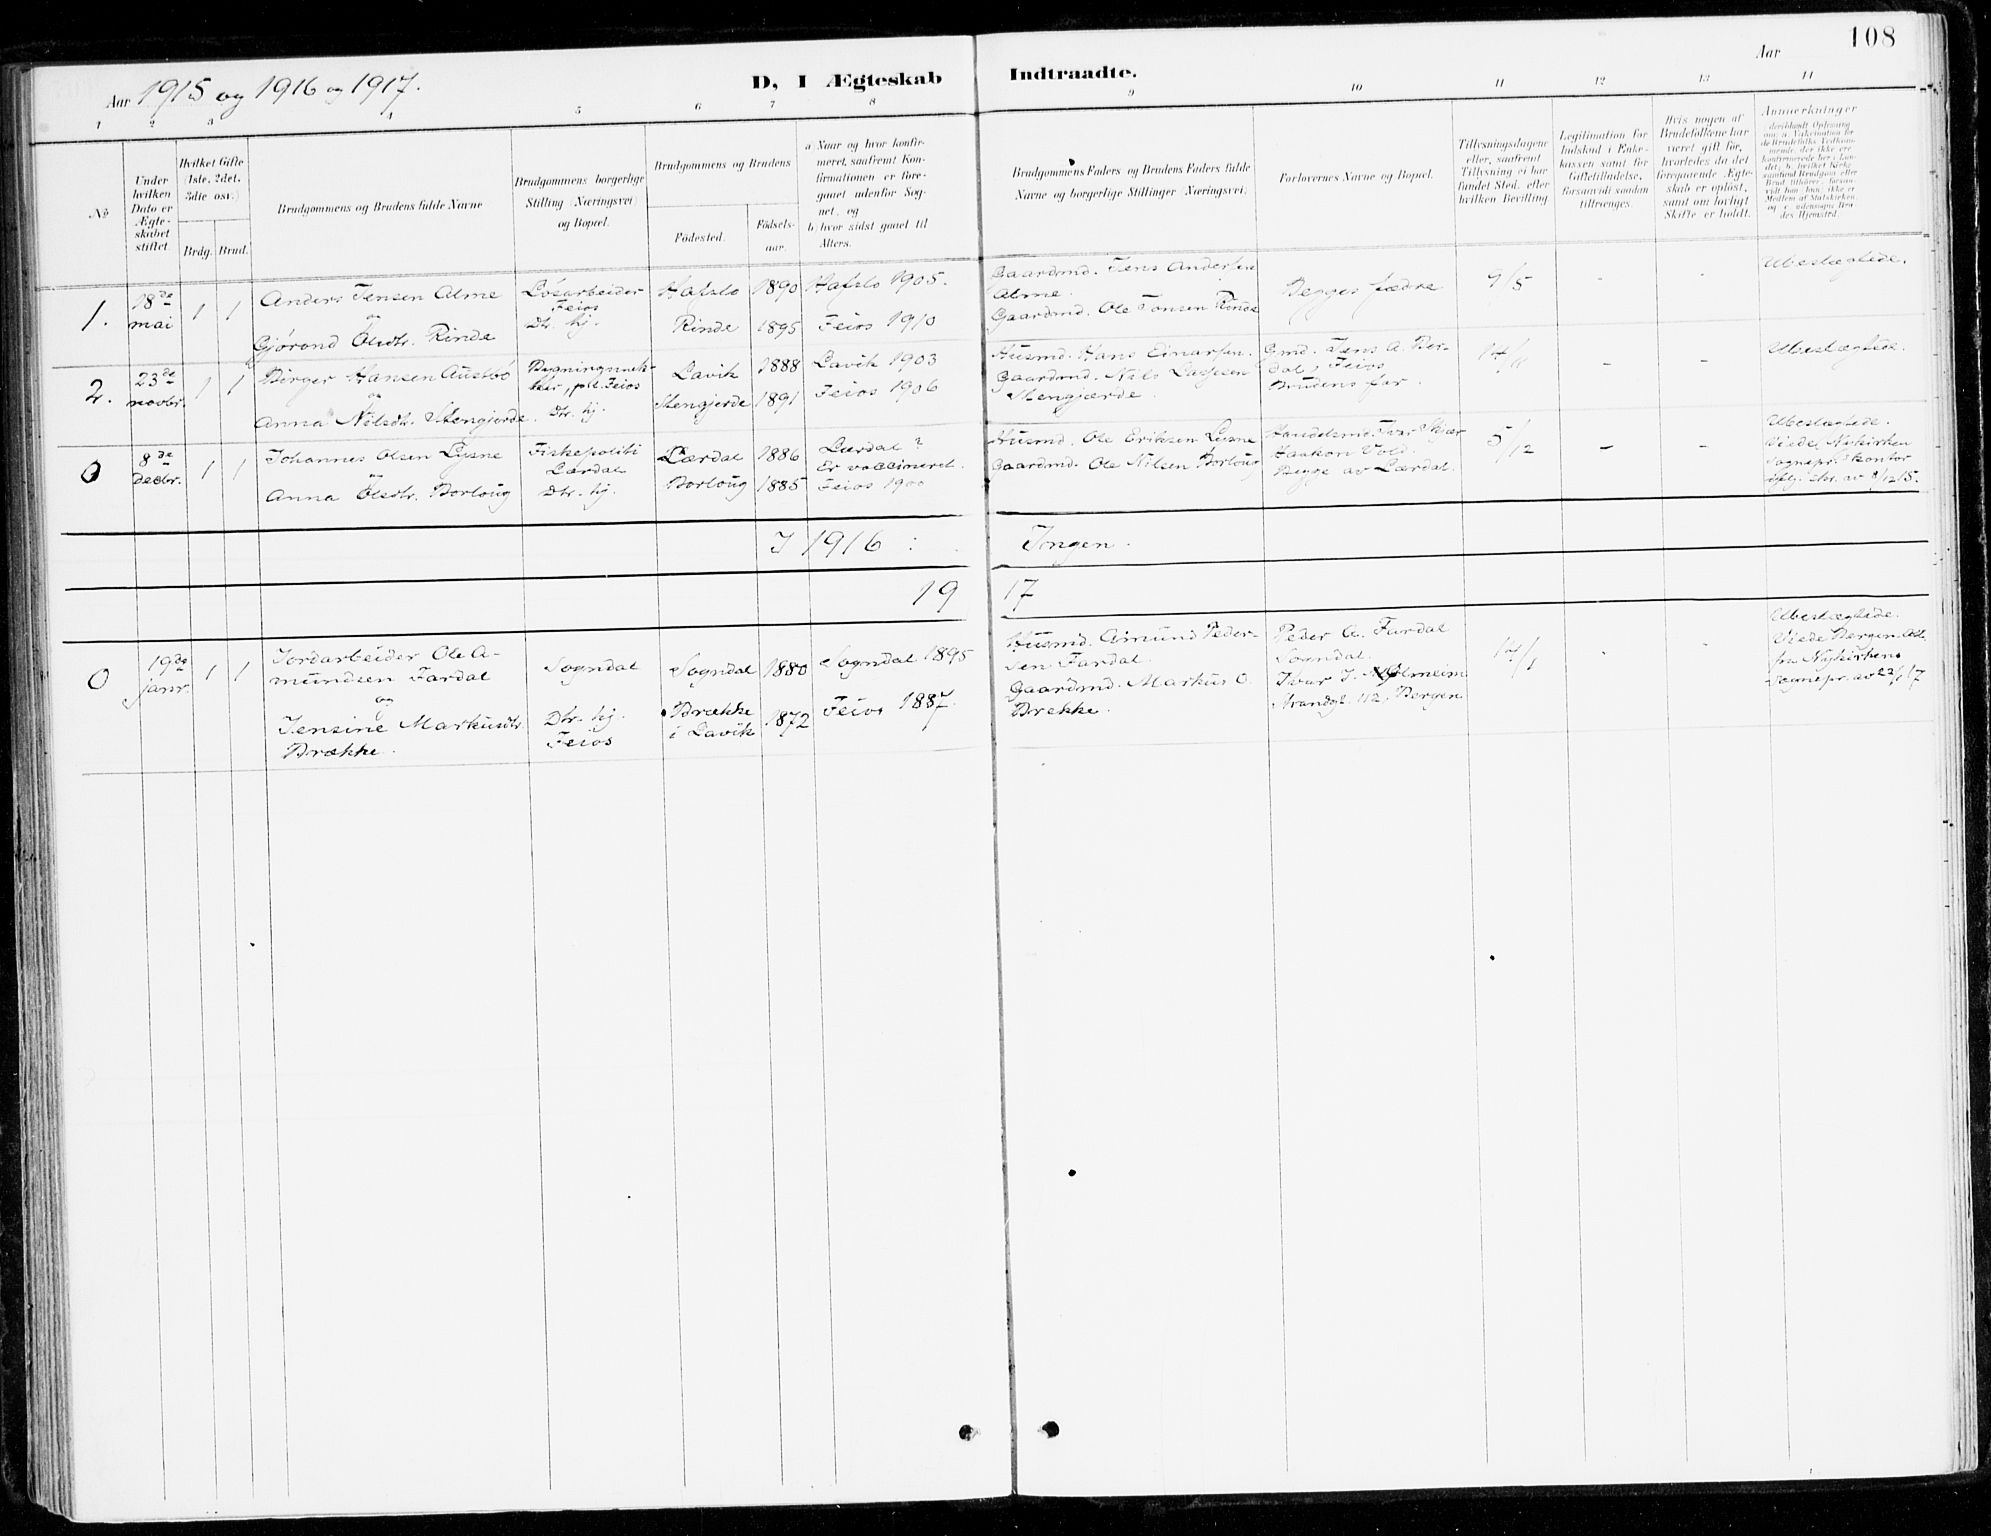 108
Aar 1915 og 1916 og 1917.
D, I Ægteskab
Indtraadte.
Aar
1 2 3 4 5 6 7 8 9 10 11 12 13 14
No
Under
hvilken
Dato er
Ægte-
skabet
stiftet.
Hvilket Gifte
(1ste, 2det,
3die osv.)
Brdg. Brud.
Brudgommens og Brudens fulde Navne
Brudgommens borgerlige
Stilling (Næringsvei)
og Bopæl.
Brudgommens og Brudens
Fødested.
Fødsels-
aar.
a) Naar og hvor konfir-
meret, saafremt Kon-
firmationen er fore-
gaaet udenfor Sog-
net, og
b) hvor sidst gaaet til
Alters.
Brudgommens Faders og Brudens Faders fulde
Navne og borgerlige Stillinger (Næringsvei)
Forlovernes Navne og Bopæl.
Tillysningsdagene
eller, saafremt
Tillysning ei har
fundet Sted, efter
hvilken Bevilling
Legitimation for
Indskud i Enke-
kassen samt for
Giftetilladelse,
forsaavidt saadan
tiltrænges.
Hvis nogen af
Brudefolkene har
været gift før,
hvorledes da det
foregaaende Ægte-
skab er opløst,
samt om lovligt
Skifte er holdt.
Anmærkninger
1.
18de
mai
1 1
Anders Jensen Alme
og
Gjørond Olsdtr. Rinde
Løsarbeider
Feios
Dtr. hj.
Hafslo
Rinde
1890
1895
Hafslo 1905.
Feios 1910
Gaardmd. Jens Andersen
Alme.
Gaardmd. Ole Tonsen Rinde
Begges fædre
9/5
-
-
Ubeslægtede.
2.
23de
novbr.
1 1
Birger Hansen Austbø
og
Anna Nilsdtr. Stengjerde
pt. Feios
Dtr. hj.
Lavik
Stengjerde
1888
1891
Lavik 1903
Feios 1906
Husmd. Hans Einarsen.
Gaardmd. Nils Lassesen
Stengjærde.
Gmd. Jens A. Ber-
dal, Feios
Brudens far.
14/11
-
-
Ubeslægtede.
0
8de
decbr.
1 1
Johannes Olsen Lysne
og
Anna Olsdtr. Borloug
Fiskepoliti
Lærdal
Dtr. hj.
Lærdal
Borloug
1886
1885
Lærdal ?
Er vaccineret.
Feios 1900
Husmd. Ole Eriksen Lysne
Gaardmd. Ole Nilsen Borloug
Handelsmd. Ivar Skjær
Haakon Vold.
Begge av Lærdal.
5/12
-
-
Ubeslægtede.
Viede, Nykirken
sognepr.s kontor
iflg. skr. av 8/12 15.
I 1916 : Ingen.
19 17
0
19de
janr.
1 1
Jordarbeider Ole A-
mundsen Fardal
og
Jensine Markusdtr.
Brække.
Sogndal
Dtr. hj.
Feios
Sogndal
Brække
i Lavik
1880
1872
Sogndal 1895
Feios 1887.
Husmd. Amund Peder-
sen Fardal.
Gaardmd. Markus O.
Brekke.
Peder A. Fardal
Sogndal.
Ivar J.
Strandgt. 112, Bergen
14/1
-
-
Ubeslægtede.
Viede Bergen. Att.
fra Nykirkens
Sognepr. av 22/1 17